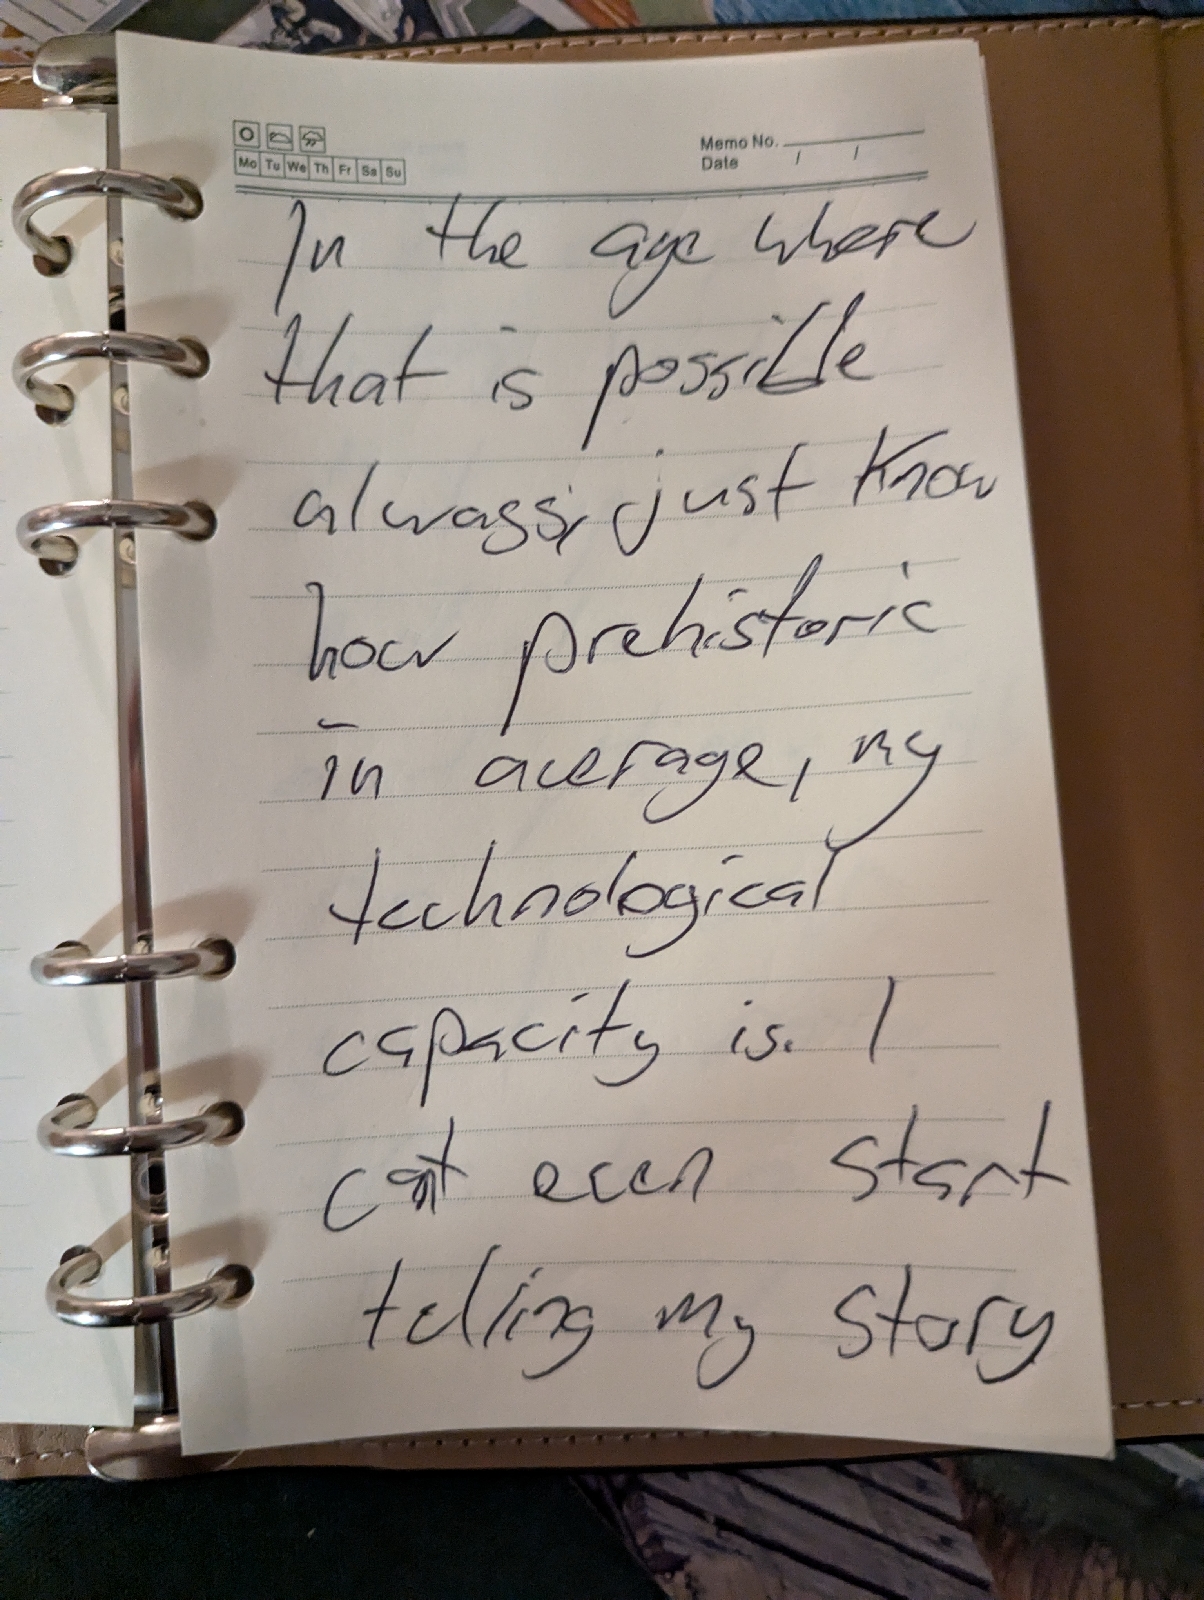 Memo No.
Mo Tu We Th Fr Sa Su
Date / /
In the age where
that is possible
always, just know
how prehistoric
in average, my
technological
capacity is. I
cant even start
telling my story